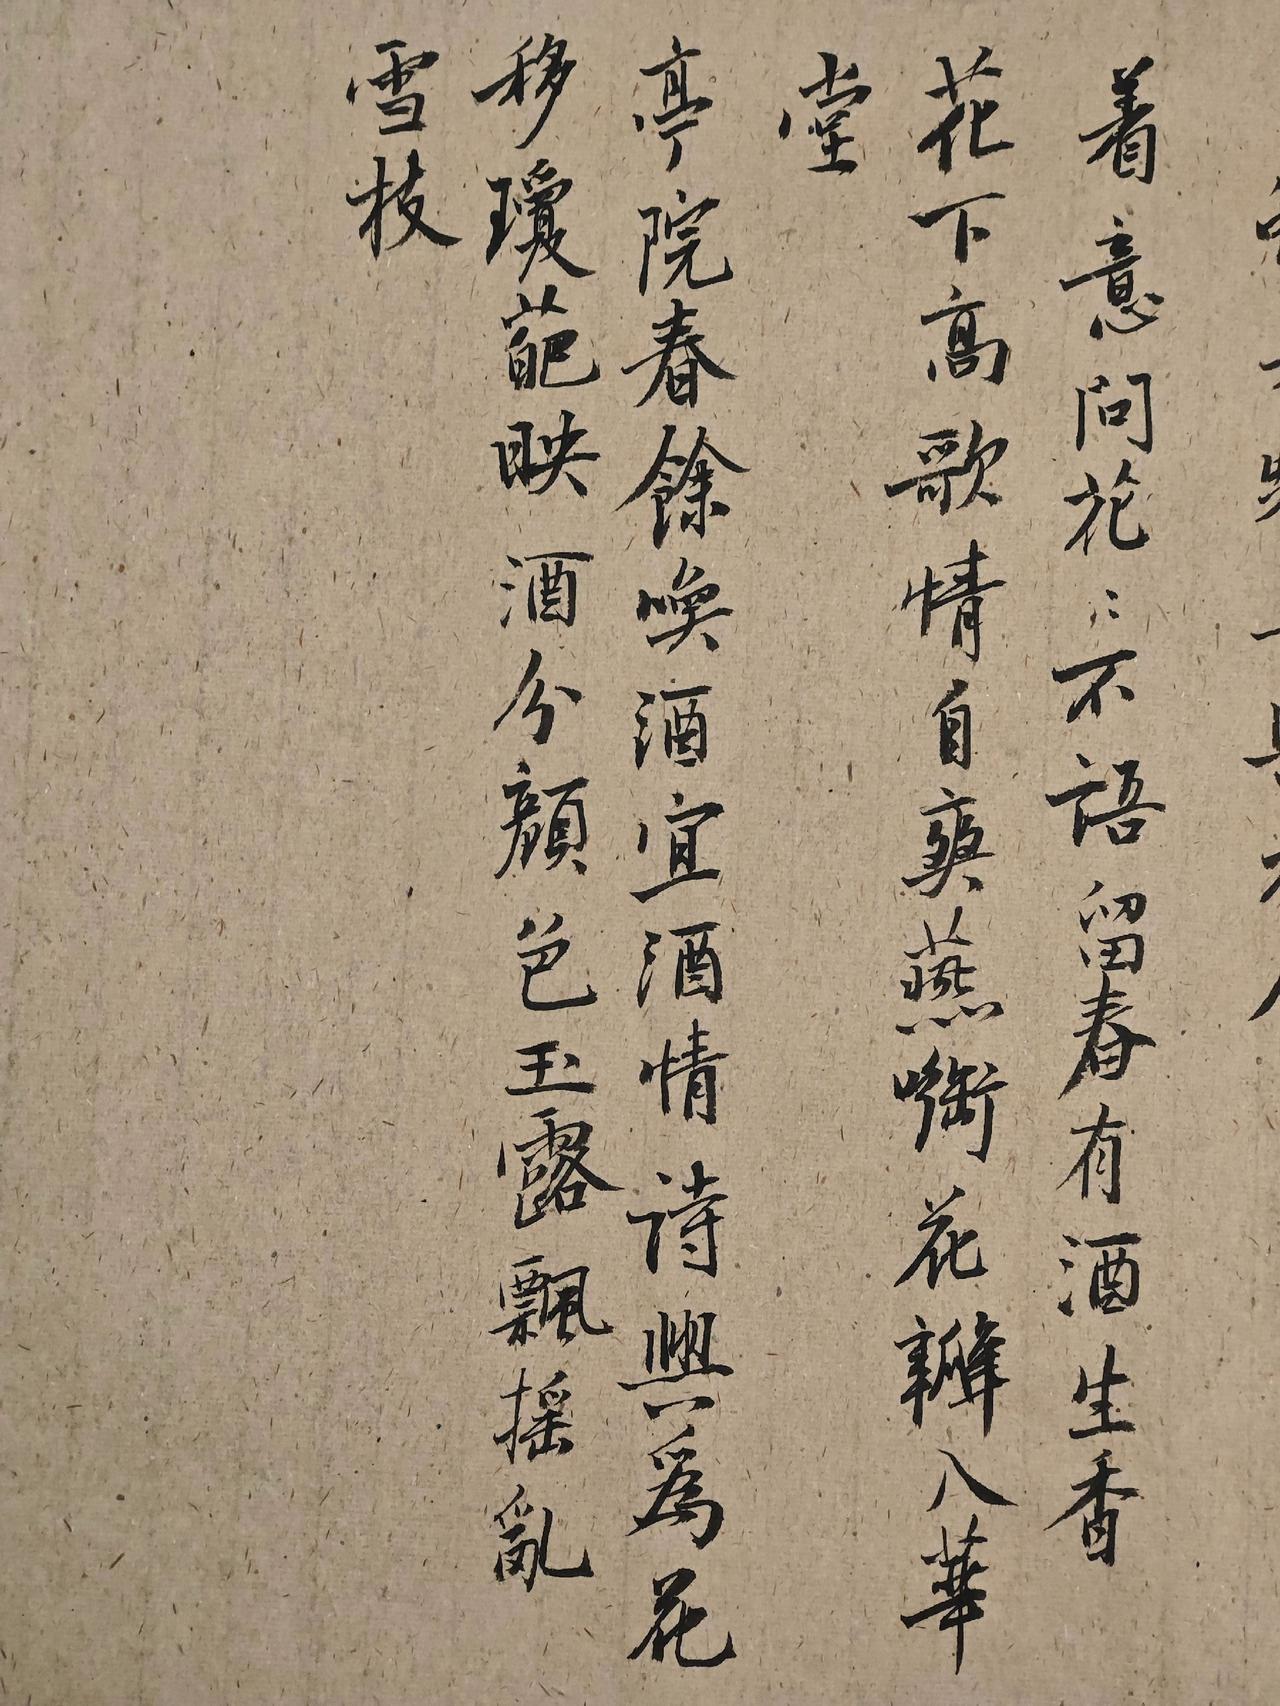 着意问花〻不語留春有酒生香
花下髙歌情自爽燕啣花瓣入華
堂
亭院春餘喚酒宜酒情詩興為花
移瓊葩映酒分顔色玉露飄摇亂
雪枝